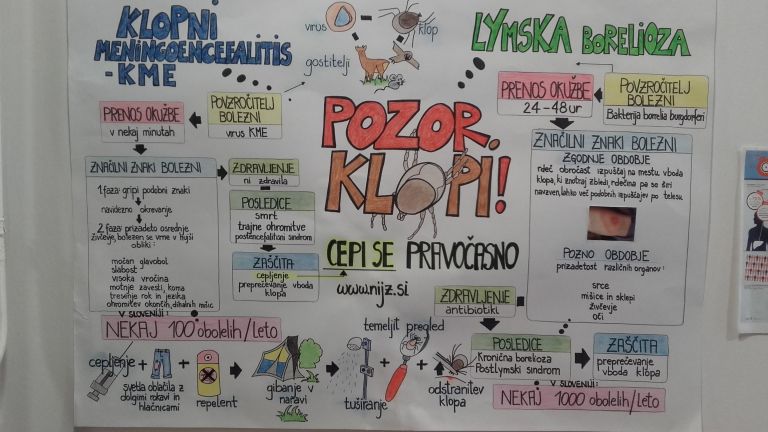 KLOPNI
MENINGOENCEFALITIS
-KME
virus
klop
gostitelji
LYMSKA BORELIOZA
PRENOS OKUŽBE
v nekaj minutah
POVZROČITELJ
BOLEZNI
virus KME
ZNAČILNI ZNAKI BOLEZNI
1.faza: gripi podobni znaki
navidezno okrevanje
2.faza: prizadeto osrednje
živčevje, bolezen se vrne v hujši
obliki:
močan glavobol
slabost
visoka vročina
motnje zavesti, koma
tresenje rok in jezika
ohromitev okončin, dihalnih mišic
ZDRAVLJENJE
ni zdravila
POSLEDICE
smrt
trajne ohromitve
postencefalitisni sindrom
ZAŠČITA
cepljenje
preprečevanje vboda
klopa
POZOR,
KLOPI!
CEPI SE PRAVOČASNO
www.nijz.si
PRENOS OKUŽBE
24-48 ur
POVZROČITELJ
BOLEZNI
Bakterija borrelia burgdorferi
ZNAČILNI ZNAKI BOLEZNI
ZGODNJE OBDOBJE
rdeč obročast izpuščaj na mestu vboda
klopa, ki znotraj zbledi, rdečina pa se širi
navzven, lahko več podobnih izpuščajev po telesu
POZNO OBDOBJE
prizadetost različnih organov:
srce
mišice in sklepi
živčevje
oči
ZDRAVLJENJE
antibiotiki
POSLEDICE
Kronična borelioza
PostLymski sindrom
ZAŠČITA
preprečevanje
vboda klopa
V SLOVENIJI:
NEKAJ 1000 obolelih/leto
V SLOVENIJI:
NEKAJ 100 obolelih/leto
cepljenje
svetla oblačila z
dolgimi rokavi in
hlačnicami
repelent
gibanje v
naravi
tuširanje
temeljit pregled
odstranitev
klopa